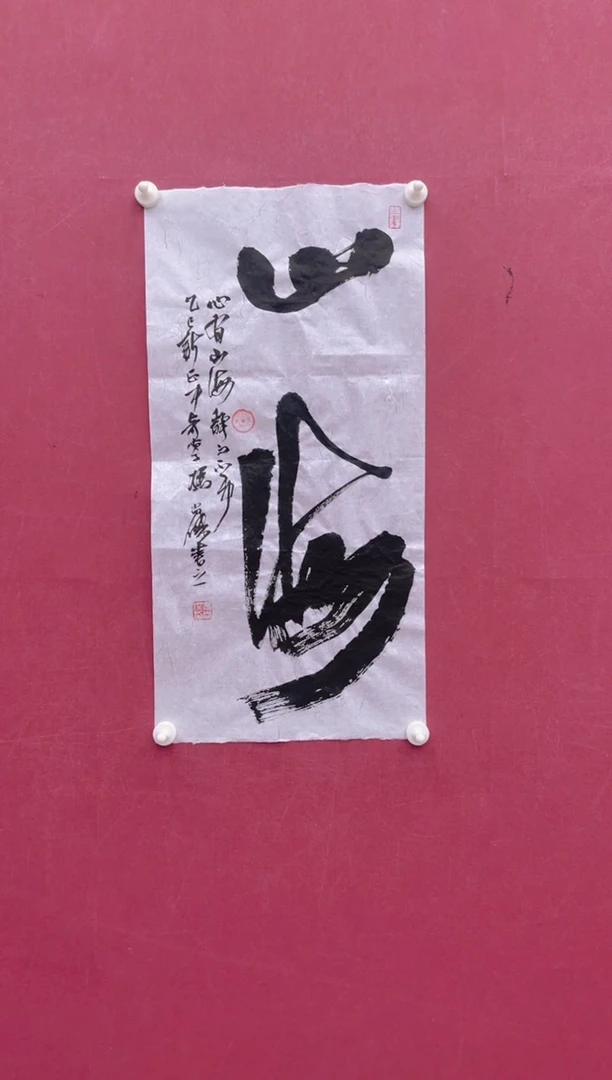 山海
心有山海 静而不争
乙巳新正
书之